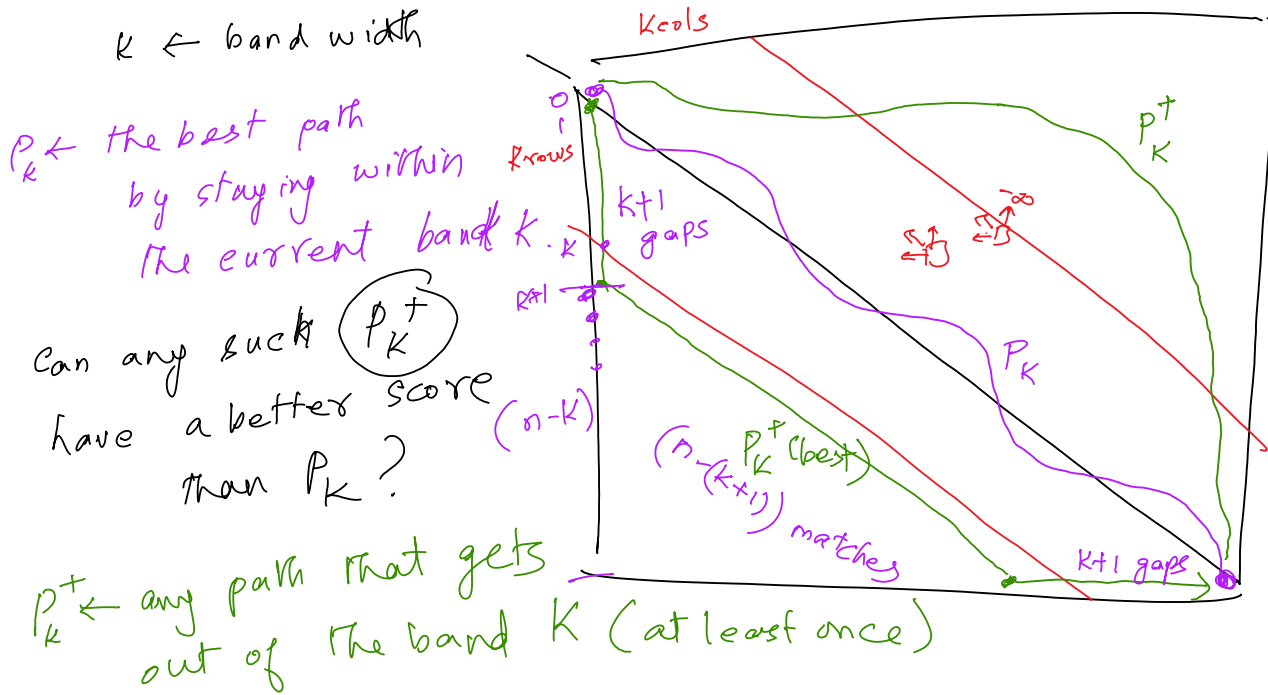 K ← band width
P_k ← the best path
by staying within
the current band K.
Can any such P_K^+
have a better score
than P_K?
P_k^+ ← any path that gets
out of the band K (at least once)
K cols
0
1
k rows
K+1
gaps
K
K+1
(n-K)
P_K^+
-∞
P_K
P_K^+ (best)
(n-(K+1))
matches
K+1 gaps